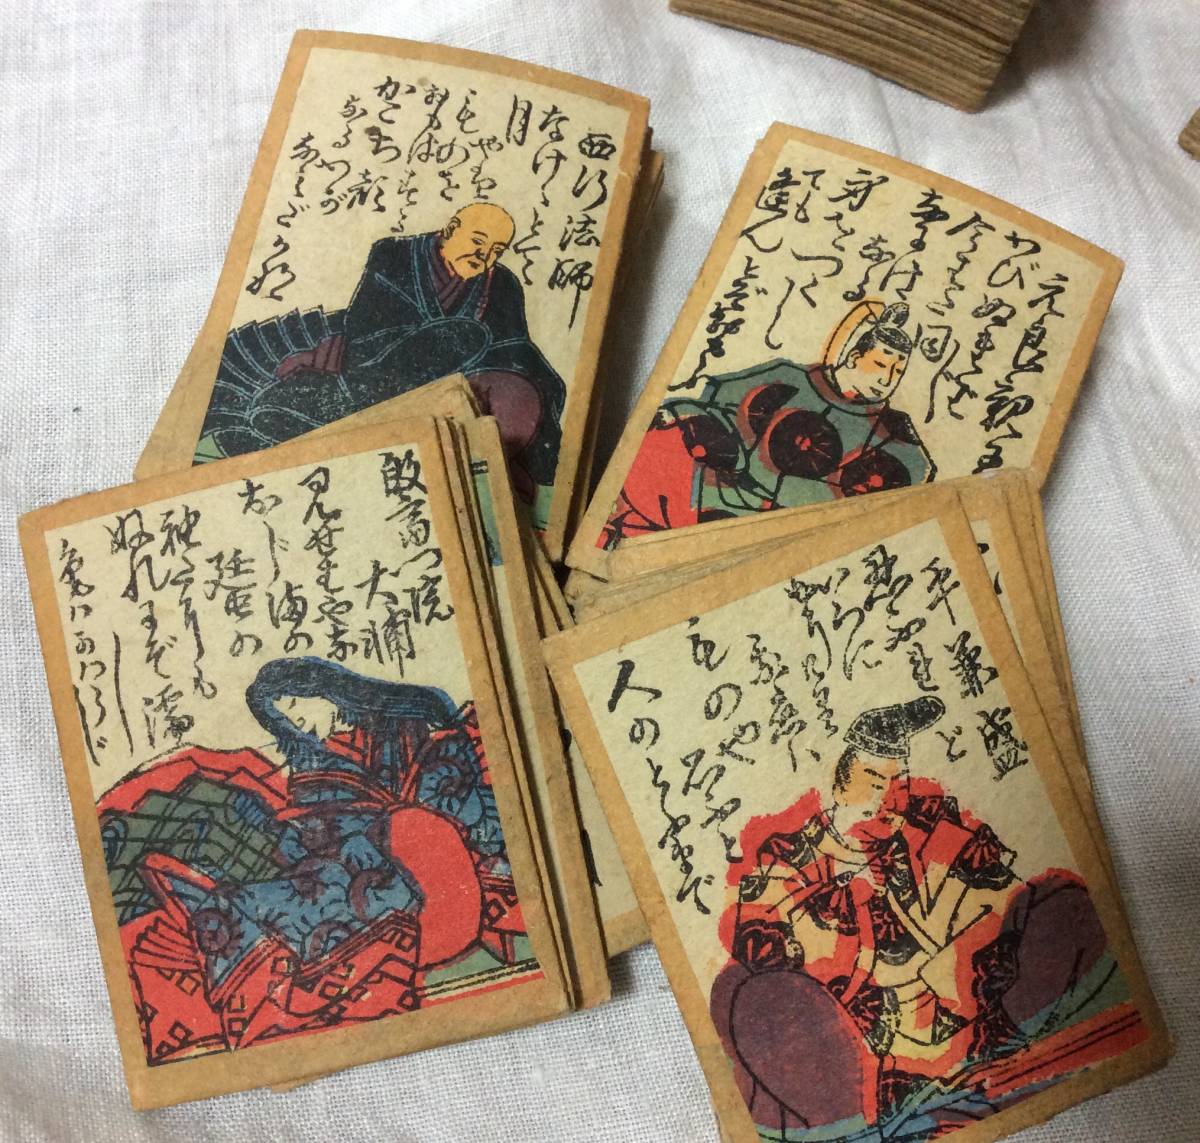 西行法師
なけゝとて
月
やは
ものを
おもはする
かこち顔
なるわが
なみだかな
元良親王
わびぬれば
今はた同じ
なにはなる
身をつくし
ても
逢んとぞ
殷富門院
大輔
見せばやな
おじ海の
袖だにも
ぬれにぞ濡し
色はかわらじ
平兼盛
忍ぶれど
いろに
我恋は
ものや
人のとふまで